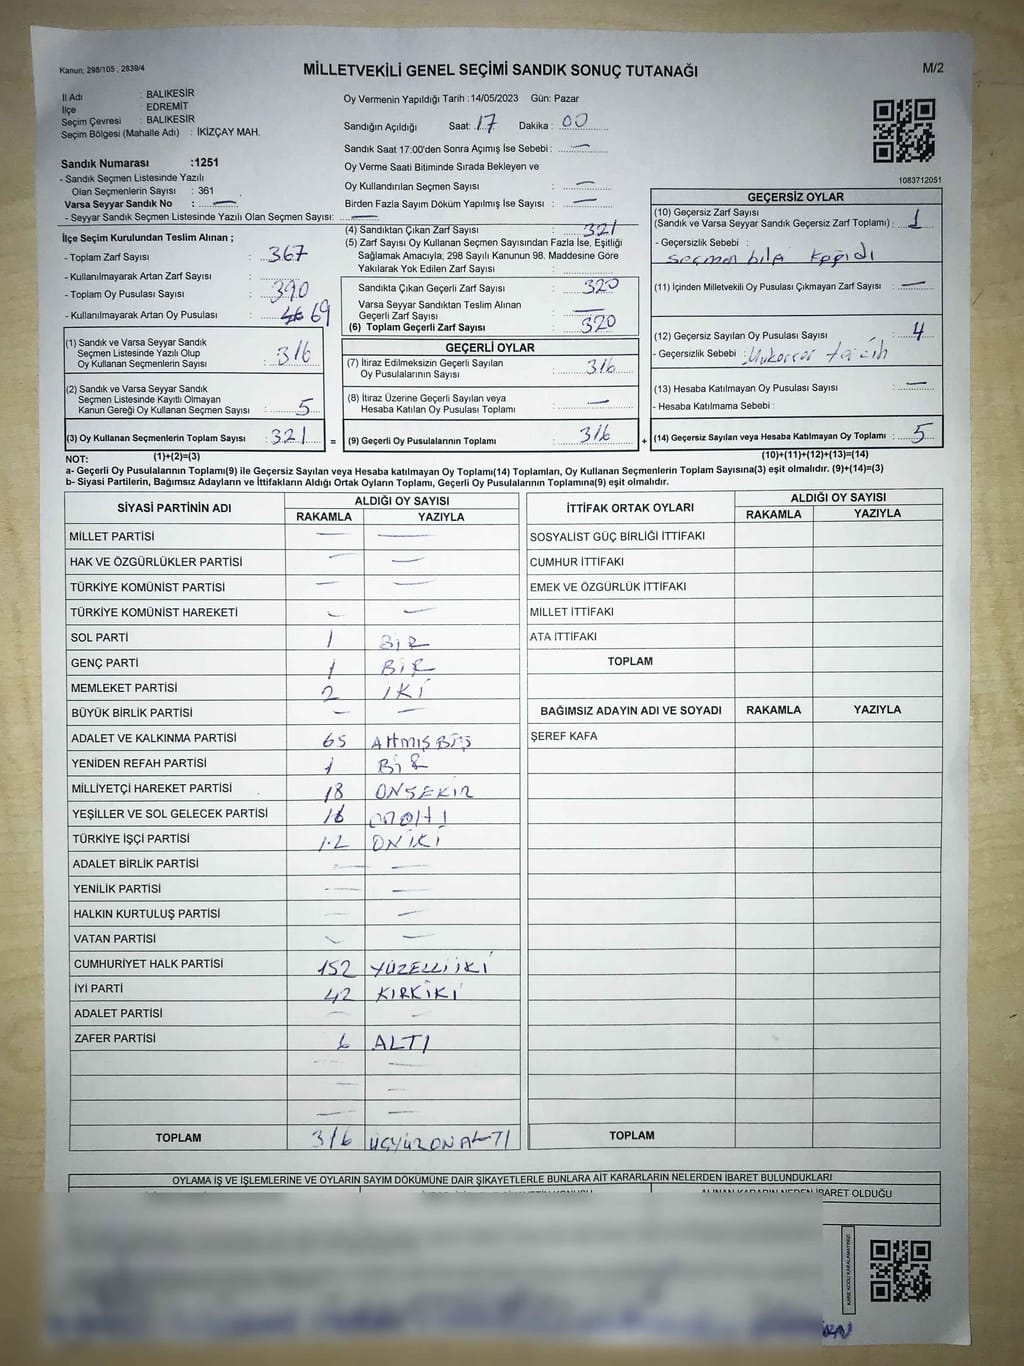 Kanun: 298/105 , 2839/4
MİLLETVEKİLİ GENEL SEÇİMİ SANDIK SONUÇ TUTANAĞI
M/2
İl Adı : BALIKESİR
İlçe : EDREMİT
Seçim Çevresi : BALIKESİR
Seçim Bölgesi (Mahalle Adı) : İKİZÇAY MAH.
Sandık Numarası :1251
- Sandık Seçmen Listesinde Yazılı
Olan Seçmenlerin Sayısı : 361
Varsa Seyyar Sandık No : —
- Seyyar Sandık Seçmen Listesinde Yazılı Olan Seçmen Sayısı: —
Oy Vermenin Yapıldığı Tarih :14/05/2023 Gün: Pazar
Sandığın Açıldığı Saat: 17 Dakika : 00
Sandık Saat 17:00'den Sonra Açımış İse Sebebi : —
Oy Verme Saati Bitiminde Sırada Bekleyen ve
Oy Kullandırılan Seçmen Sayısı : —
Birden Fazla Sayım Döküm Yapılmış İse Sayısı : —
1083712051
İlçe Seçim Kurulundan Teslim Alınan ;
- Toplam Zarf Sayısı : 367
- Kullanılmayarak Artan Zarf Sayısı :
- Toplam Oy Pusulası Sayısı : 390
- Kullanılmayarak Artan Oy Pusulası : 69
(1) Sandık ve Varsa Seyyar Sandık
Seçmen Listesinde Yazılı Olup
Oy Kullanan Seçmenlerin Sayısı : 316
(2) Sandık ve Varsa Seyyar Sandık
Seçmen Listesinde Kayıtlı Olmayan
Kanun Gereği Oy Kullanan Seçmen Sayısı : 5
(3) Oy Kullanan Seçmenlerin Toplam Sayısı : 321 =
(4) Sandıktan Çıkan Zarf Sayısı : 321
(5) Zarf Sayısı Oy Kullanan Seçmen Sayısından Fazla İse, Eşitliği
Sağlamak Amacıyla; 298 Sayılı Kanunun 98. Maddesine Göre
Yakılarak Yok Edilen Zarf Sayısı :
Sandıkta Çıkan Geçerli Zarf Sayısı : 320
Varsa Seyyar Sandıktan Teslim Alınan
Geçerli Zarf Sayısı : —
(6) Toplam Geçerli Zarf Sayısı : 320
GEÇERLİ OYLAR
(7) İtiraz Edilmeksizin Geçerli Sayılan
Oy Pusulalarının Sayısı : 316
(8) İtiraz Üzerine Geçerli Sayılan veya
Hesaba Katılan Oy Pusulası Toplamı : —
(9) Geçerli Oy Pusulalarının Toplamı : 316 +
GEÇERSİZ OYLAR
(10) Geçersiz Zarf Sayısı
(Sandık ve Varsa Seyyar Sandık Geçersiz Zarf Toplamı) : 1
- Geçersizlik Sebebi :
seçmen bilgi kağıdı
(11) İçinden Milletvekili Oy Pusulası Çıkmayan Zarf Sayısı : —
(12) Geçersiz Sayılan Oy Pusulası Sayısı : 4
- Geçersizlik Sebebi : Mükerrer tercih
(13) Hesaba Katılmayan Oy Pusulası Sayısı : —
- Hesaba Katılmama Sebebi :
(14) Geçersiz Sayılan veya Hesaba Katılmayan Oy Toplamı : 5
NOT: (1)+(2)=(3) (10)+(11)+(12)+(13)=(14)
a- Geçerli Oy Pusulalarının Toplamı(9) ile Geçersiz Sayılan veya Hesaba katılmayan Oy Toplamı(14) Toplamları, Oy Kullanan Seçmenlerin Toplam Sayısına(3) eşit olmalıdır. (9)+(14)=(3)
b- Siyasi Partilerin, Bağımsız Adayların ve İttifakların Aldığı Ortak Oyların Toplamı, Geçerli Oy Pusulalarının Toplamına(9) eşit olmalıdır.
SİYASİ PARTİNİN ADI ALDIĞI OY SAYISI
RAKAMLA YAZIYLA
MİLLET PARTİSİ — —
HAK VE ÖZGÜRLÜKLER PARTİSİ — —
TÜRKİYE KOMÜNİST PARTİSİ — —
TÜRKİYE KOMÜNİST HAREKETİ — —
SOL PARTİ 1 BİR
GENÇ PARTİ 1 BİR
MEMLEKET PARTİSİ 2 İKİ
BÜYÜK BİRLİK PARTİSİ — —
ADALET VE KALKINMA PARTİSİ 65 ATMIŞBEŞ
YENİDEN REFAH PARTİSİ 1 BİR
MİLLİYETÇİ HAREKET PARTİSİ 18 ONSEKİZ
YEŞİLLER VE SOL GELECEK PARTİSİ 16 ONALTI
TÜRKİYE İŞÇİ PARTİSİ 12 ONİKİ
ADALET BİRLİK PARTİSİ — —
YENİLİK PARTİSİ — —
HALKIN KURTULUŞ PARTİSİ — —
VATAN PARTİSİ — —
CUMHURİYET HALK PARTİSİ 152 YÜZELLİİKİ
İYİ PARTİ 42 KIRKİKİ
ADALET PARTİSİ — —
ZAFER PARTİSİ 6 ALTI
— —
— —
— —
TOPLAM 316 ÜÇYÜZONALTI
İTTİFAK ORTAK OYLARI ALDIĞI OY SAYISI
RAKAMLA YAZIYLA
SOSYALİST GÜÇ BİRLİĞİ İTTİFAKI
CUMHUR İTTİFAKI
EMEK VE ÖZGÜRLÜK İTTİFAKI
MİLLET İTTİFAKI
ATA İTTİFAKI
TOPLAM
BAĞIMSIZ ADAYIN ADI VE SOYADI RAKAMLA YAZIYLA
ŞEREF KAFA
TOPLAM
OYLAMA İŞ VE İŞLEMLERİNE VE OYLARIN SAYIM DÖKÜMÜNE DAİR ŞİKAYETLERLE BUNLARA AİT KARARLARIN NELERDEN İBARET BULUNDUKLARI
ALINAN KARARIN NEDEN İBARET OLDUĞU
KARE KODU KARALAMAYINIZ!